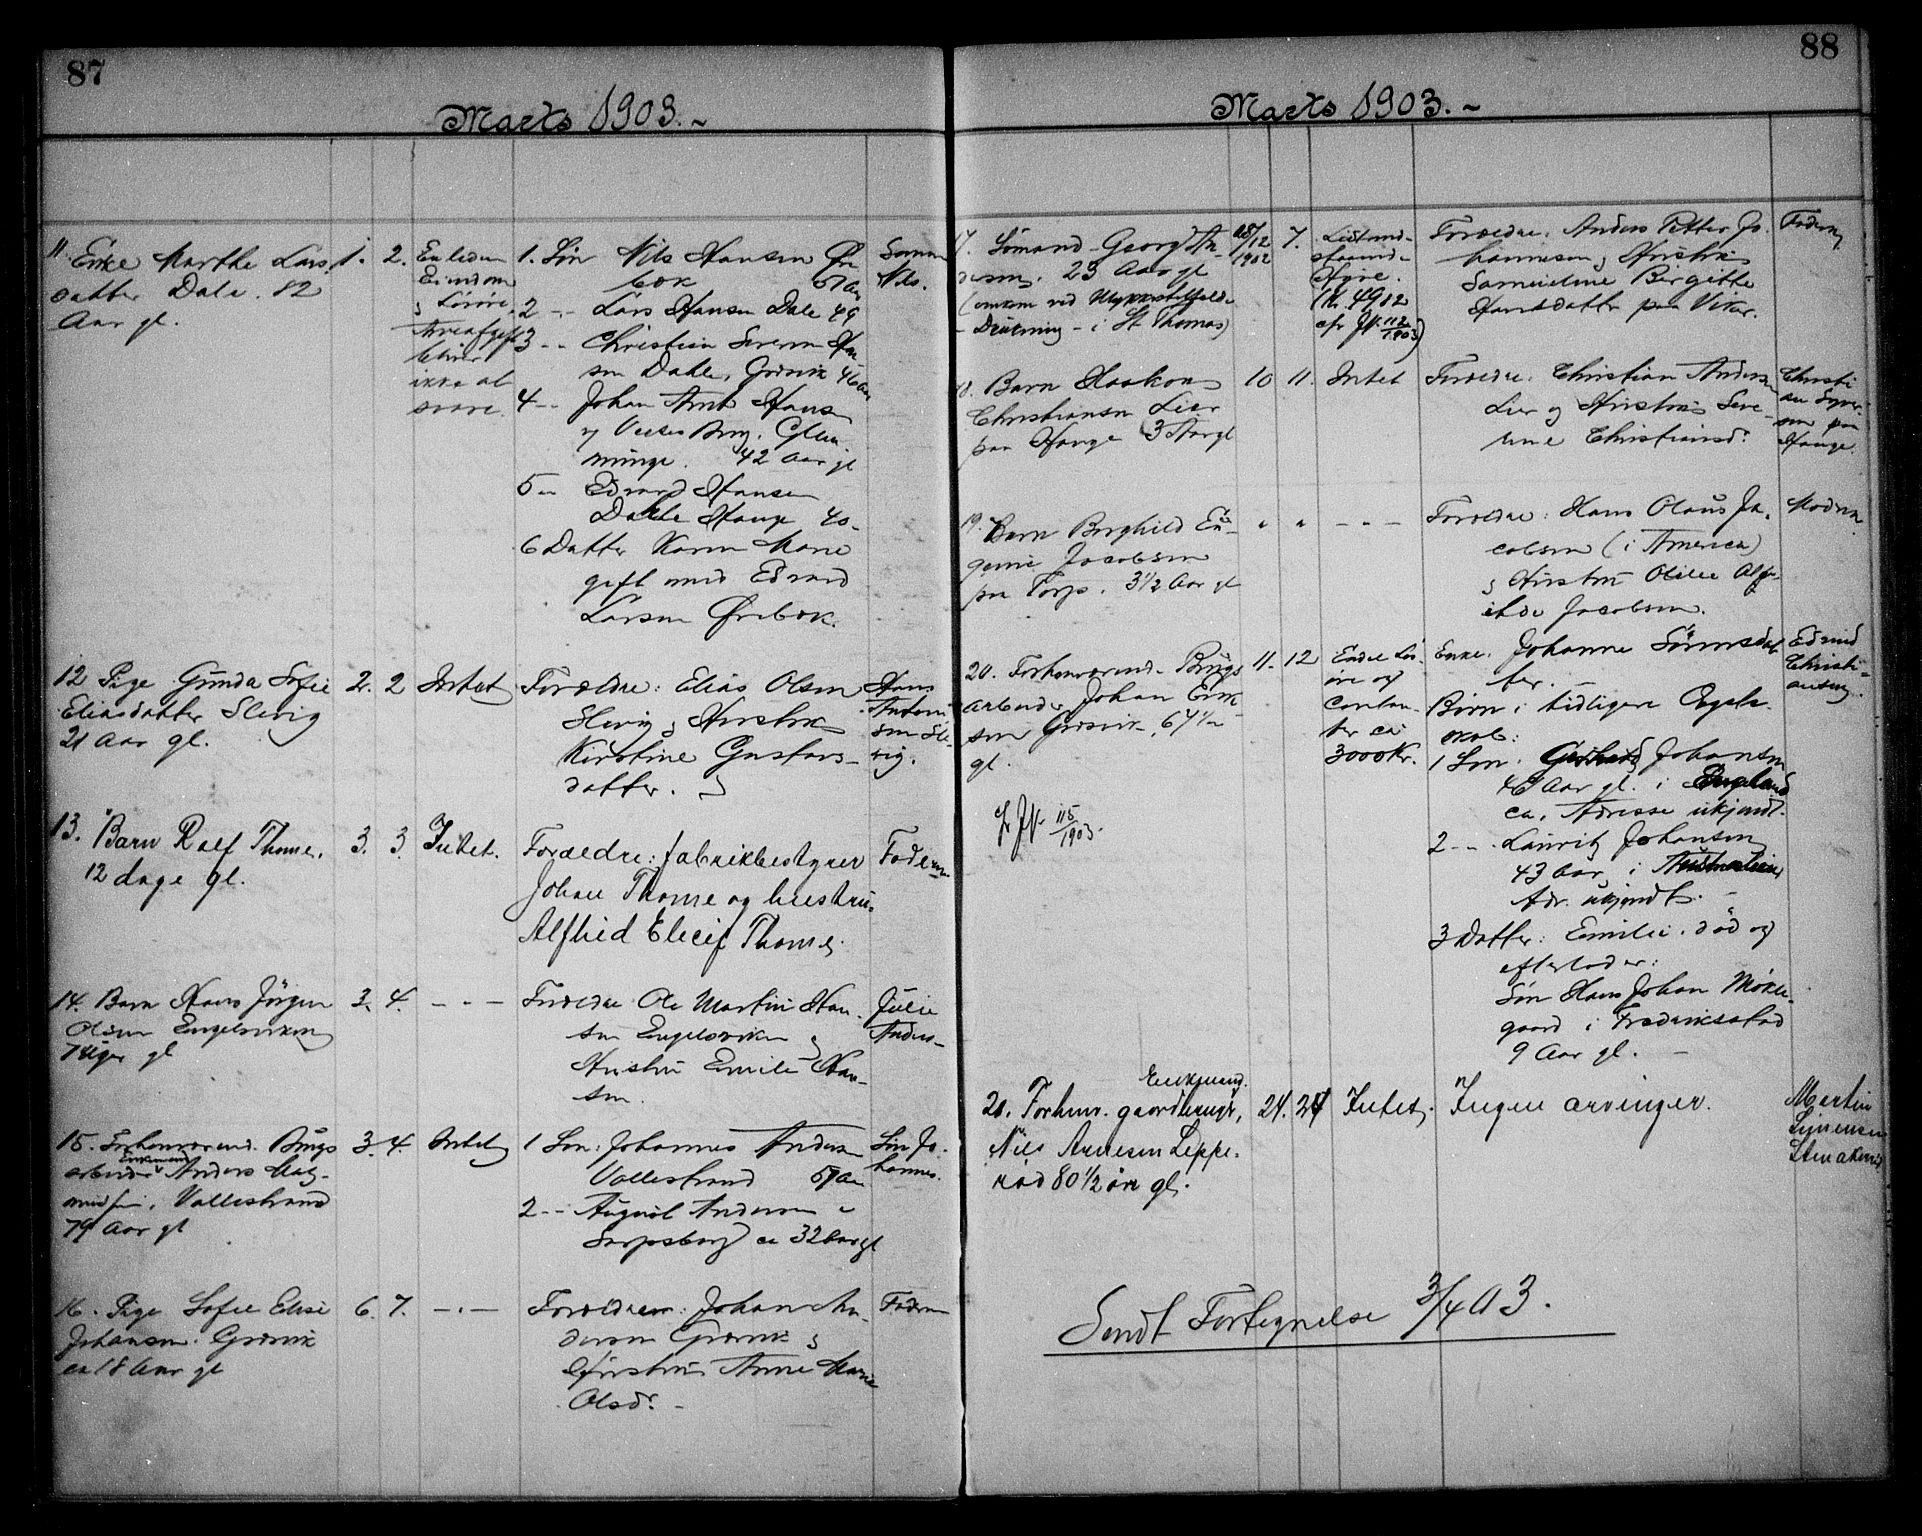 87
Marts 1903.
11. Enke Marthe Lars
datter Dale. 82
Aar gl.
1. 2.
Eiendom
Løsøre,
Arveafgift
bliver
ikke at
svare.
1. Søn Nils Hansen Øre
bek 51 Aar
2 - - Lars Hansen Dale 49
3 - - Christian Severin Han
sen Dahle, Græsvik 46 Aar
4 - - Johan Hansen
42 Aar gl
5 - Edvard Hansen
Dahle Hauge 40 -
6 Datter Karen Marie
gift med Edvard
Larsen Ørebek.
Sønnen
Nils.
12 Pige Gunda Sofie
Eliasdatter Slevig
21 Aar gl.
2. 2 Intet
Forældre: Elias Olsen
Slevig og Hustru
Kirstine Gustavs-
datter.
Hans
Antoni
sen Sle
vig.
13. Barn Ralf Thome,
12 dage gl.
3. 3. Intet.
Forældre: fabrikbestyrer
Johan Thome og hustru
Alfhild Thome.
Faderen
14. Barn Hans Jörgen
Olsen Engelsviken
7 Uger gl
3. 4. - - -
Forældre Ole Martin Han
sen Engelsviken og
Hustru Emilie Han-
sen.
Julie
Anders-
15. Forhenværend. Brugs
arbeider Enkemand Anders Mag-
nussen, Vallestrand
79 Aar gl
3. 4. Intet
1 Søn: Johannes Andersen
Vallestrand 57 Aar
2 - - August Andersen i
Sarpsborg ca 32 Aar gl
Søn Jo-
hannes.
16. Pige Sofie Elise
Johansen. Græsvik
ca 18 Aar gl
6. 7. - . -
Forældre: Johan An
dersen Græsvik og
Hustru Anne Marie
Olsd.
Faderen
88
Marts 1903.
17. Sømand Georg An
dersen. 23 Aar gl
(omkom ved Ulykkestilfælde
- Drukning - i St Thomas)
/12
1902
7.
Hyre.
Kr. 49.12
cfr JN. 112/1903)
Forældre: Anders Petter Jo
hannesen og Hustru
Birgitte
Hansdatter paa Viker.
Faderen
18. Barn Haakon
Christiansen Lier
paa Hauge 3 Aar gl
10 11. Intet
Forældre: Christian Andersen
Lier og Hustru Seve-
rine Christiansd.
Christi
an Syver
sen paa
Hauge.
19. Barn Borghild Eu-
genie Jacobsen
paa Torp. 3 1/2 Aar gl
" " - - -
Forældre: Hans Olaus Ja
cobsen (i America)
og Hustru Olilie
Jacobsen.
Moderen
20. Forhenværend. Brugs
arbeider Johan Erik
sen Græsvik. 67 Aar
gl.
cfr JN. 115/1903.
11. 12
Endel Løs
øre og
contan-
ter ca
3000 Kr.
Enke: Johanne Sörensdat
ter. -
Børn i tidligere Ægte-
skab:
1 Søn: Johansen
Aar gl. i England
ca, Adresse ukjendt.
2 - - Lauritz Johansen
43 Aar, i Australien
Adr. ukjendt.
3 Datter: Emilie. død og
efterlader:
Søn Hans Johan Mökle-
gaard i Fredriksstad
9 Aar gl. -
Edvind
Christi-
ansen.
21. Forhenv. gaardbruger, Enkemand.
Nils Arnesen Leppe-
röd 80 1/2 år gl.
24. 24 Intet.
Ingen arvinger.
Martin
Syversen
Sendt Fortegnelse 3/4 03.